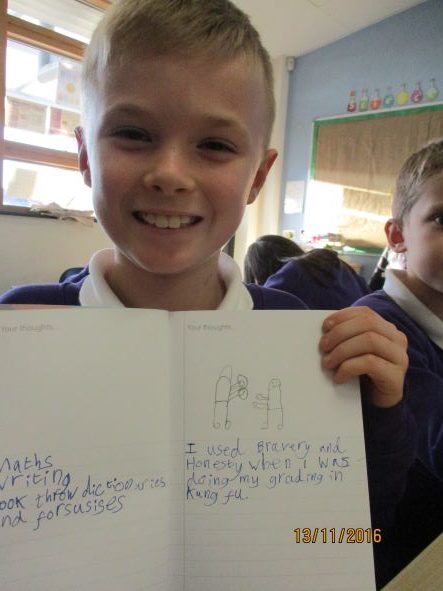 Your thoughts...
Maths
writing
look throw dictionaries
and forsusises
Your thoughts...
I used Bravery and
Honesty when I was
doing my grading in
Kung fu.
13/11/2016